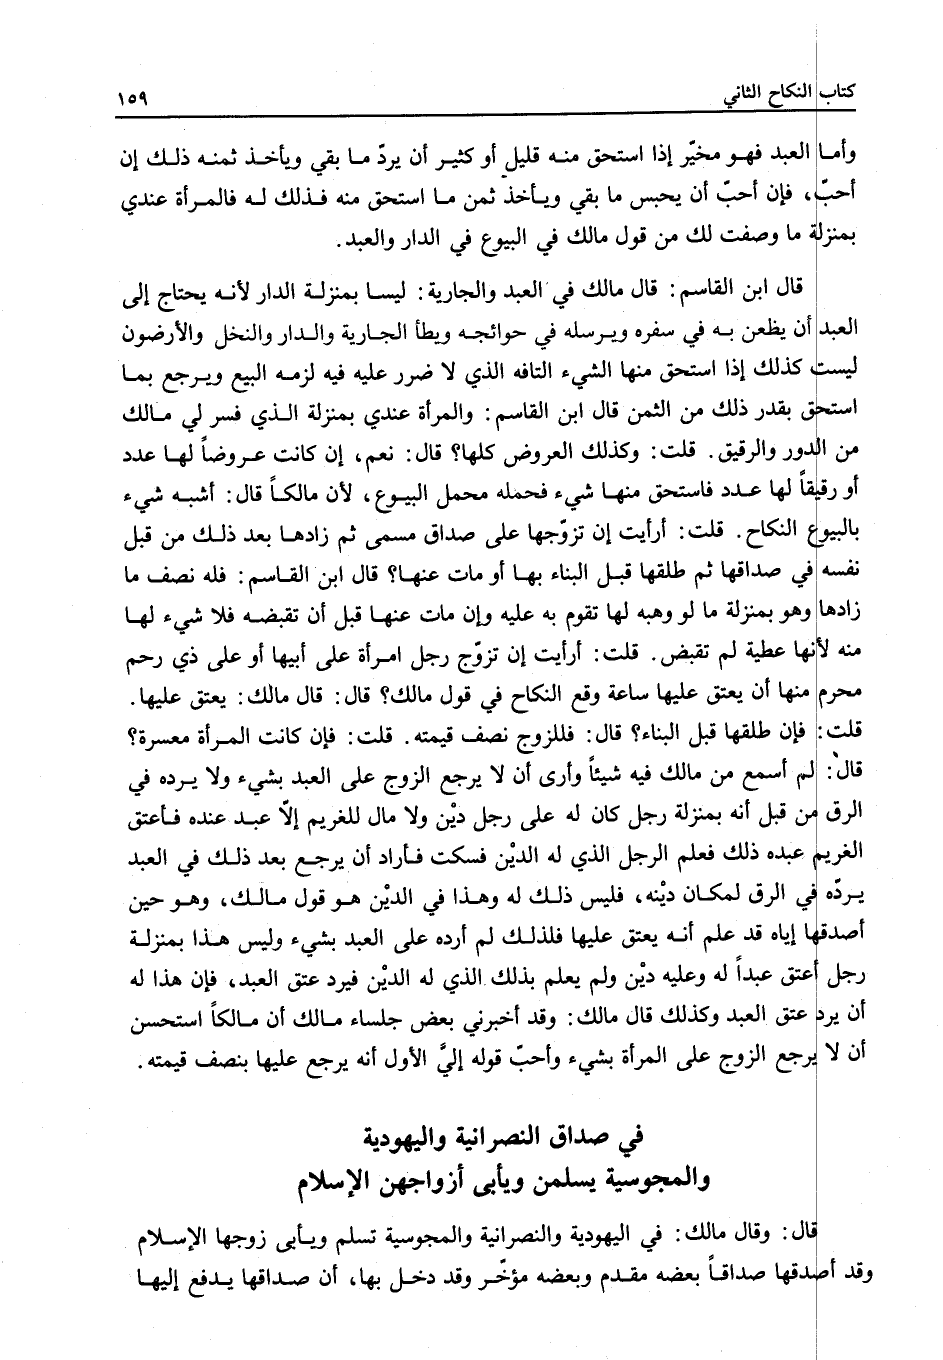 كتاب النكاح الثاني ١٥٩
وأما العبد فهو مخيّر إذا استحق منه قليل أو كثير أن يردّ ما بقي ويأخذ ثمنه ذلك إن
أحبّ، فإن أحبّ أن يحبس ما بقي ويأخذ ثمن ما استحق منه فذلك له فالمرأة عندي
بمنزلة ما وصفت لك من قول مالك في البيوع في الدار والعبد.
قال ابن القاسم: قال مالك في العبد والجارية: ليسا بمنزلة الدار لأنه يحتاج إلى
العبد أن يظعن به في سفره ويرسله في حوائجه ويطأ الجارية والدار والنخل والأرضون
ليست كذلك إذا استحق منها الشيء التافه الذي لا ضرر عليه فيه لزمه البيع ويرجع بما
استحق بقدر ذلك من الثمن قال ابن القاسم: والمرأة عندي بمنزلة الذي فسر لي مالك
من الدور والرقيق. قلت: وكذلك العروض كلها؟ قال: نعم، إن كانت عروضاً لها عدد
أو رقيقاً لها عدد فاستحق منها شيء فحمله محمل البيوع، لأن مالكاً قال: أشبه شيء
بالبيوع النكاح. قلت: أرأيت إن تزوّجها على صداق مسمى ثم زادها بعد ذلك من قبل
نفسه في صداقها ثم طلقها قبل البناء بها أو مات عنها؟ قال ابن القاسم: فله نصف ما
زادها وهو بمنزلة ما لو وهبه لها تقوم به عليه وإن مات عنها قبل أن تقبضه فلا شيء لها
منه لأنها عطية لم تقبض. قلت: أرأيت إن تزوّج رجل امرأة على أبيها أو على ذي رحم
محرم منها أن يعتق عليها ساعة وقع النكاح في قول مالك؟ قال: قال مالك: يعتق عليها.
قلت: فإن طلقها قبل البناء؟ قال: فللزوج نصف قيمته. قلت: فإن كانت المرأة معسرة؟
قال: لم أسمع من مالك فيه شيئاً وأرى أن لا يرجع الزوج على العبد بشيء ولا يرده في
الرق من قبل أنه بمنزلة رجل كان له على رجل ديْن ولا مال للغريم إلاّ عبد عنده فأعتق
الغريم عبده ذلك فعلم الرجل الذي له الديْن فسكت فأراد أن يرجع بعد ذلك في العبد
يردّه في الرق لمكان ديْنه، فليس ذلك له وهذا في الديْن هو قول مالك، وهو حين
أصدقها إياه قد علم أنه يعتق عليها فلذلك لم أرده على العبد بشيء وليس هذا بمنزلة
رجل أعتق عبداً له وعليه ديْن ولم يعلم بذلك الذي له الديْن فيرد عتق العبد، فإن هذا له
أن يرد عتق العبد وكذلك قال مالك: وقد أخبرني بعض جلساء مالك أن مالكاً استحسن
أن لا يرجع الزوج على المرأة بشيء وأحبّ قوله إليَّ الأول أنه يرجع عليها بنصف قيمته.
في صداق النصرانية واليهودية
والمجوسية يسلمن ويأبى أزواجهن الإسلام
قال: وقال مالك: في اليهودية والنصرانية والمجوسية تسلم ويأبى زوجها الإسلام
وقد أصدقها صداقاً بعضه مقدم وبعضه مؤخّر وقد دخل بها، أن صداقها يدفع إليها